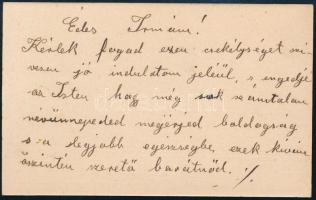 Édes Irmám!
Kérlek fogad ezen csekélységet szi-
vesen jó indulatom jeléül, s engedje
az Isten hogy még sok számtalan
névünnepeded megérjed boldogság
s a legjobb egészségbe, ezek kiván
őszintén szerető barátnőd. ·/.